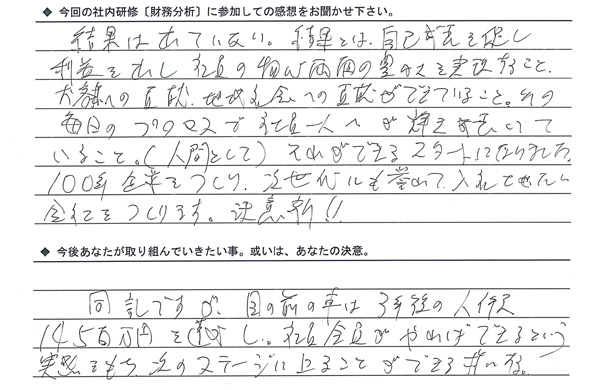 ◆ 今回の社内研修〔財務分析〕に参加しての感想をお聞かせ下さい。
結果は出ていない。結果とは、自己成長を促し
利益を出し 社員の物心両面の豊かさを実現すること、
お客様への貢献、地域社会への貢献ができていること。その
毎日のプロセスで社員一人一人が輝き成長して
いること。(人間として) それができるスタートになりました。
100年企業をつくり、次世代にも誉めて、入社して
会社をつくります。決意新!!
◆ 今後あなたが取り組んでいきたい事。或いは、あなたの決意。
同計ですが、目の前の事は 3年後の
1450万円を し。社員全員が やればできるという
実感をもち、次のステージに上ることができる